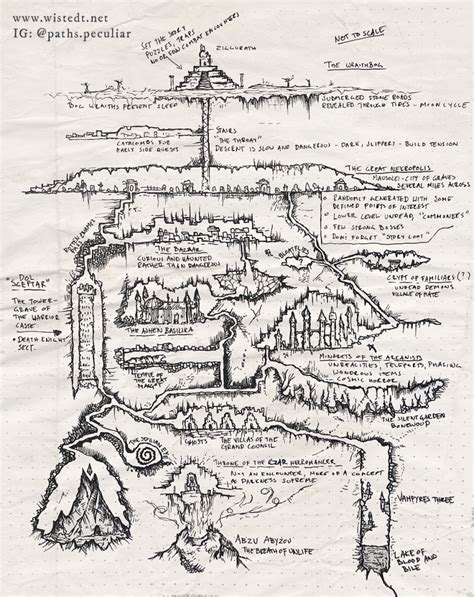 www.wistedt.net
IG: @paths.peculiar
SET THE STORY
PUZZLES, TRAPS
NO OR FEW COMBAT ENCOUNTERS
ZIGGURATH
NOT TO SCALE
THE WRAITHBOG
BOG WRAITHS PREVENT SLEEP
SUBMERGED STONE ROADS
REVEALED THROUGH TIDES - MOONCYCLE
CATACOMBS FOR
EARLY SIDE QUESTS
STAIRS
"THE THROAT"
DESCENT IS SLOW AND DANGEROUS - DARK, SLIPPERY - BUILD TENSION
THE GREAT NEKROPOLIS
MAUSOLEI - CITY OF GRAVES
SEVERAL MILES ACROSS
RANDOMLY GENERATED WITH SOME
DEFINED POINTS OF INTEREST
LOWER LEVEL UNDEAD, "COMMONERS"
FEW STRONG BOSSES
DON'T FORGET "STORY LOOT"
THE BAZAAR
CURIOUS AND HAUNTED
RATHER THAN DANGEROUS
CRYPT OF FAMILIARS (?)
UNDEAD DEMONS
VILLAGE OF HATE
"DOL
SCEPTAR"
THE TOWER-
GRAVE OF
THE WARRIOR
CASTE
DEATH KNIGHT
SECT.
THE ASHEN BASILIKA
MINARETS OF THE ARCANISTS
UNREALITIES, TELEPORTS, PHASING
WONDROUS ITEMS
COSMIC HORROR
TEMPLE OF
THE GREAT
MAGGOT
THE SILENT GARDEN
BONEWOOD
THE SPIRAL
GHOSTS
THE VILLAS OF THE
GRAND COUNCIL
THRONE OF THE CZAR NECROMANCER
NOT AN ENCOUNTER, MORE OF A CONCEPT
OF DARKNESS SUPREME
VAMPYRES THREE
ABZU ABYZOU
THE BREATH OF UNLIFE
LAKE OF
BLOOD AND
BILE